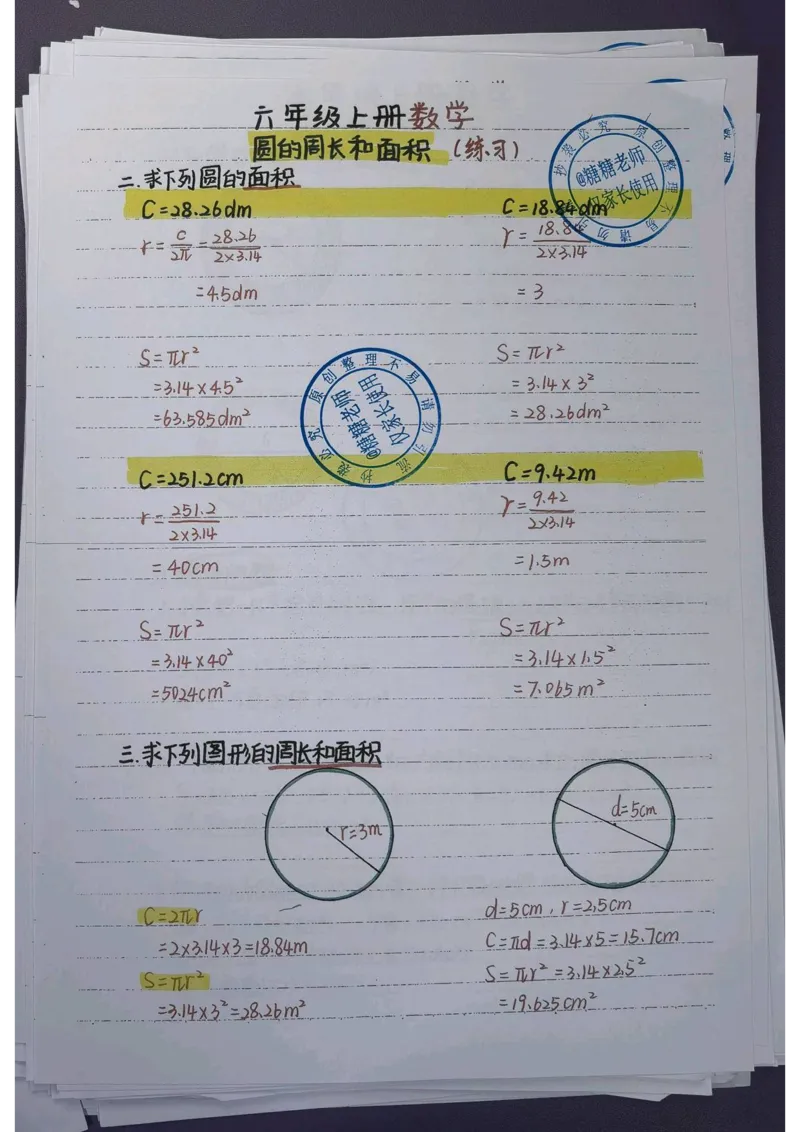 六年级上册数学
圆的周长和面积（练习）
二.求下列圆的面积
C=28.26dm
r=C/2π=28.26/2×3.14
=4.5dm
S=πr²
=3.14×4.5²
=63.585dm²
C=18.84dm
r=18.8/2×3.14
=3
S=πr²
=3.14×3²
=28.26dm²
C=251.2cm
r=251.2/2×3.14
=40cm
S=πr²
=3.14×40²
=5024cm²
C=9.42m
r=9.42/2×3.14
=1.5m
S=πr²
=3.14×1.5²
=7.065m²
三.求下列图形的周长和面积
r=3m
C=2πr
=2×3.14×3=18.84m
S=πr²
=3.14×3²=28.26m²
d=5cm
d=5cm，r=2.5cm
C=πd=3.14×5=15.7cm
S=πr²=3.14×2.5²
=19.625cm²
原创整理不易请勿引流抄袭必究
@糖糖老师
仅家长使用
原创整理不易请勿
抄袭必究
@糖糖老师
仅家长使用